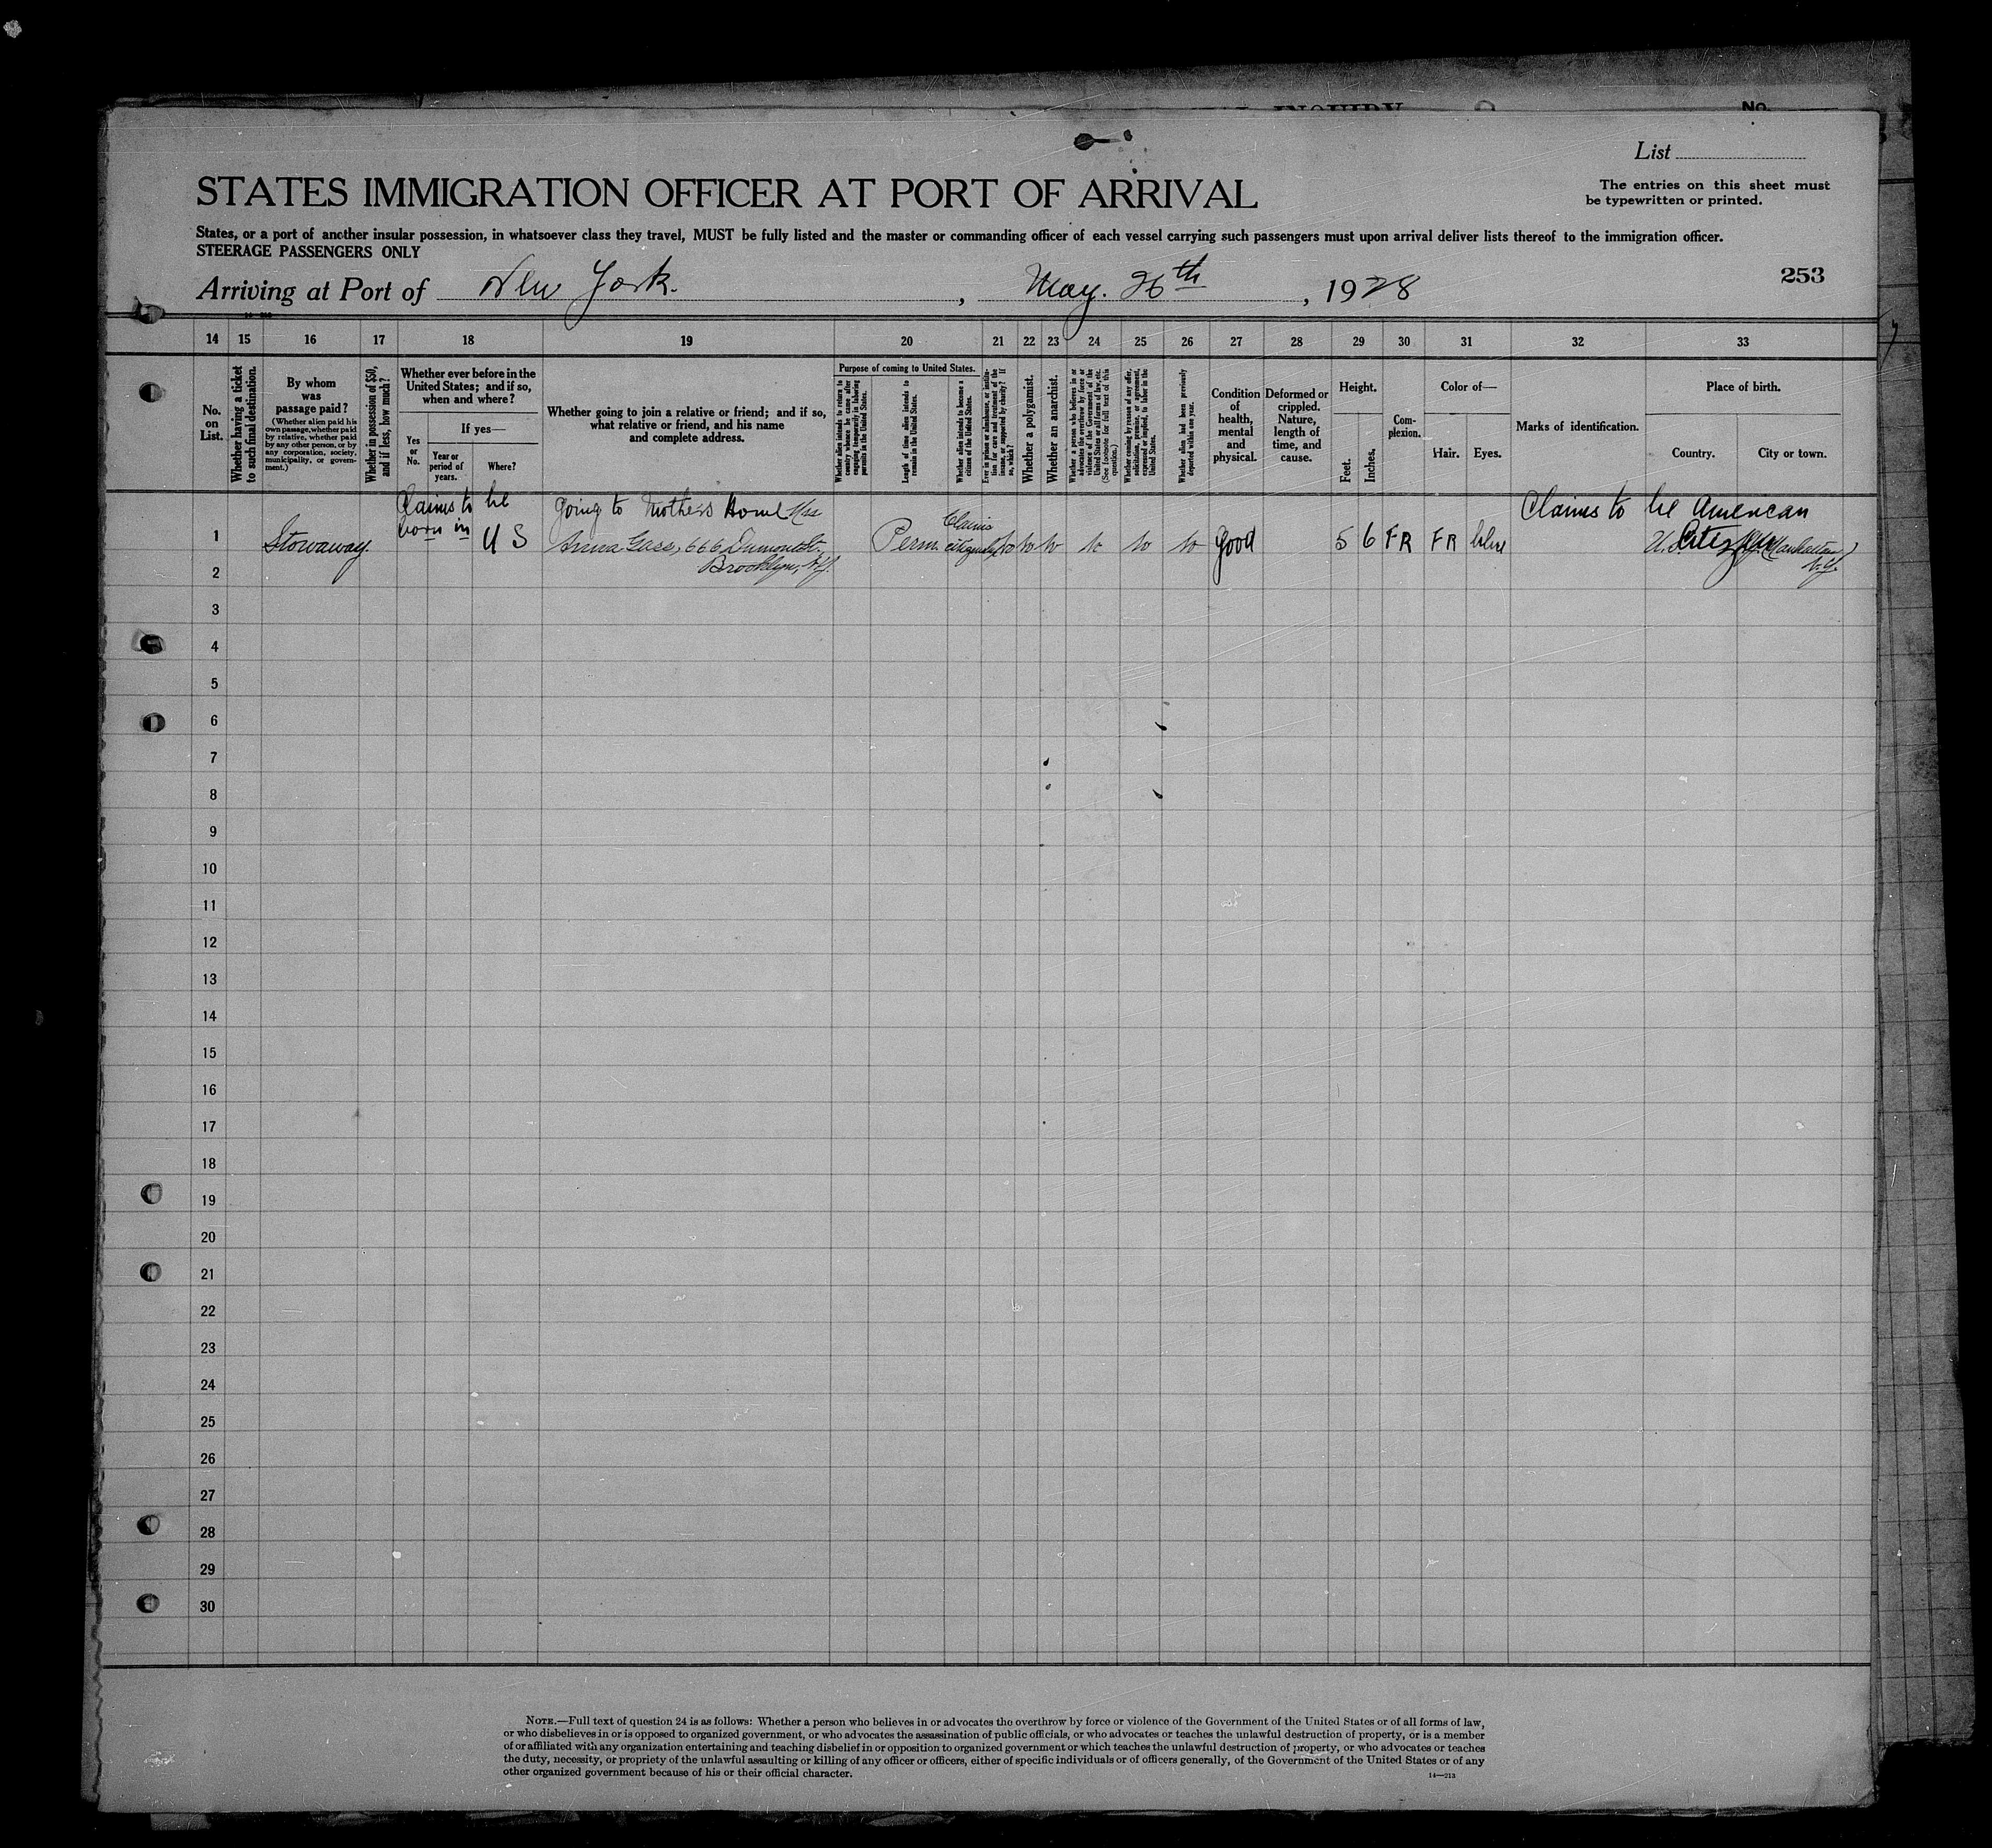 INQUIRY
No.
List
STATES IMMIGRATION OFFICER AT PORT OF ARRIVAL
The entries on this sheet must
be typewritten or printed.
States, or a port of another insular possession, in whatsoever class they travel, MUST be fully listed and the master or commanding officer of each vessel carrying such passengers must upon arrival deliver lists thereof to the immigration officer.
STEERAGE PASSENGERS ONLY
Arriving at Port of New York. , May. 26th , 1928
253
14 15 16 17 18 19 20 21 22 23 24 25 26 27 28 29 30 31 32 33
No. on List.
Whether having a ticket to such final destination.
By whom was passage paid?
(Whether alien paid his own passage, whether paid by relative, whether paid by any other person, or by any corporation, society, municipality, or government.)
Whether in possession of $50, and if less, how much?
Whether ever before in the United States; and if so, when and where?
Yes or No.
If yes—
Year or period of years.
Where?
Whether going to join a relative or friend; and if so, what relative or friend, and his name and complete address.
Purpose of coming to United States.
Whether alien intends to return to country whence he came after engaging temporarily in laboring pursuits in the United States.
Length of time alien intends to remain in the United States.
Whether alien intends to become a citizen of the United States.
Ever in prison or almshouse, or institution for care and treatment of the insane, or supported by charity? If so, which?
Whether a polygamist.
Whether an anarchist.
Whether a person who believes in or advocates the overthrow by force or violence of the Government of the United States or all forms of law, etc. (See footnote for full text of this question.)
Whether coming by reason of any offer, solicitation, promise, or agreement, expressed or implied, to labor in the United States.
Whether alien had been previously deported within one year.
Condition of health, mental and physical.
Deformed or crippled. Nature, length of time, and cause.
Height.
Feet.
Inches.
Complexion.
Color of—
Hair.
Eyes.
Marks of identification.
Place of birth.
Country.
City or town.
Claims to be going to Mothers Home Mrs Claims to be American
born in U S Claims Citizen
1 Stowaway. Anna Gass, 666 Dumont St. Perm. citizenship No No No No No No good 5 6 FR FR blue U.S. Manhattan
2 Brooklyn, N.Y. N.Y.
3
4
5
6
7
8
9
10
11
12
13
14
15
16
17
18
19
20
21
22
23
24
25
26
27
28
29
30
NOTE.—Full text of question 24 is as follows: Whether a person who believes in or advocates the overthrow by force or violence of the Government of the United States or of all forms of law,
or who disbelieves in or is opposed to organized government, or who advocates the assassination of public officials, or who advocates or teaches the unlawful destruction of property, or is a member
of or affiliated with any organization entertaining and teaching disbelief in or opposition to organized government or which teaches the unlawful destruction of property, or who advocates or teaches
the duty, necessity, or propriety of the unlawful assaulting or killing of any officer or officers, either of specific individuals or of officers generally, of the Government of the United States or of any
other organized government because of his or their official character.
14—213